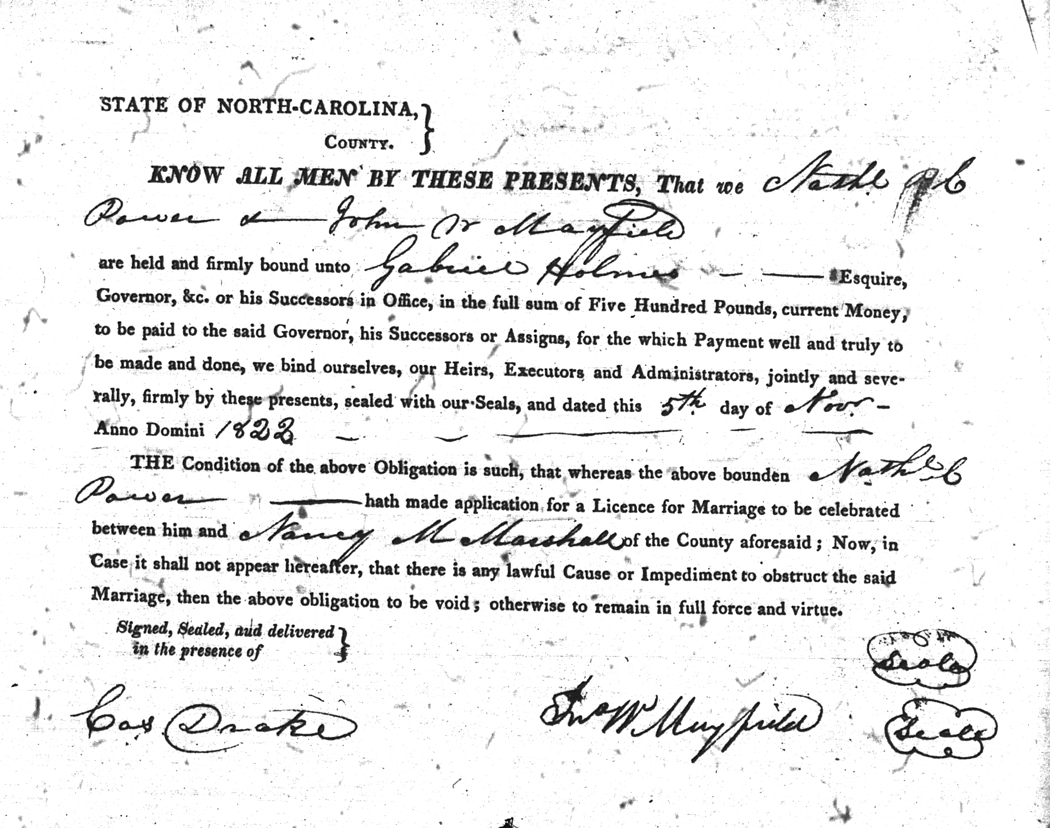 STATE OF NORTH-CAROLINA,
COUNTY.
KNOW ALL MEN BY THESE PRESENTS, That we Nathl C
Power & John W Mayfield
are held and firmly bound unto Gabriel Holmes Esquire,
Governor, &c. or his Successors in Office, in the full sum of Five Hundred Pounds, current Money,
to be paid to the said Governor, his Successors or Assigns, for the which Payment well and truly to
be made and done, we bind ourselves, our Heirs, Executors and Administrators, jointly and seve-
rally, firmly by these presents, sealed with our Seals, and dated this 5th day of Novr
Anno Domini 1822
THE Condition of the above Obligation is such, that whereas the above bounden Nathl C
Power hath made application for a Licence for Marriage to be celebrated
between him and Nancy M Marshall of the County aforesaid; Now, in
Case it shall not appear hereafter, that there is any lawful Cause or Impediment to obstruct the said
Marriage, then the above obligation to be void; otherwise to remain in full force and virtue.
Signed, Sealed, and delivered
in the presence of
Seale
Cas Drake Jno W Mayfield Seale